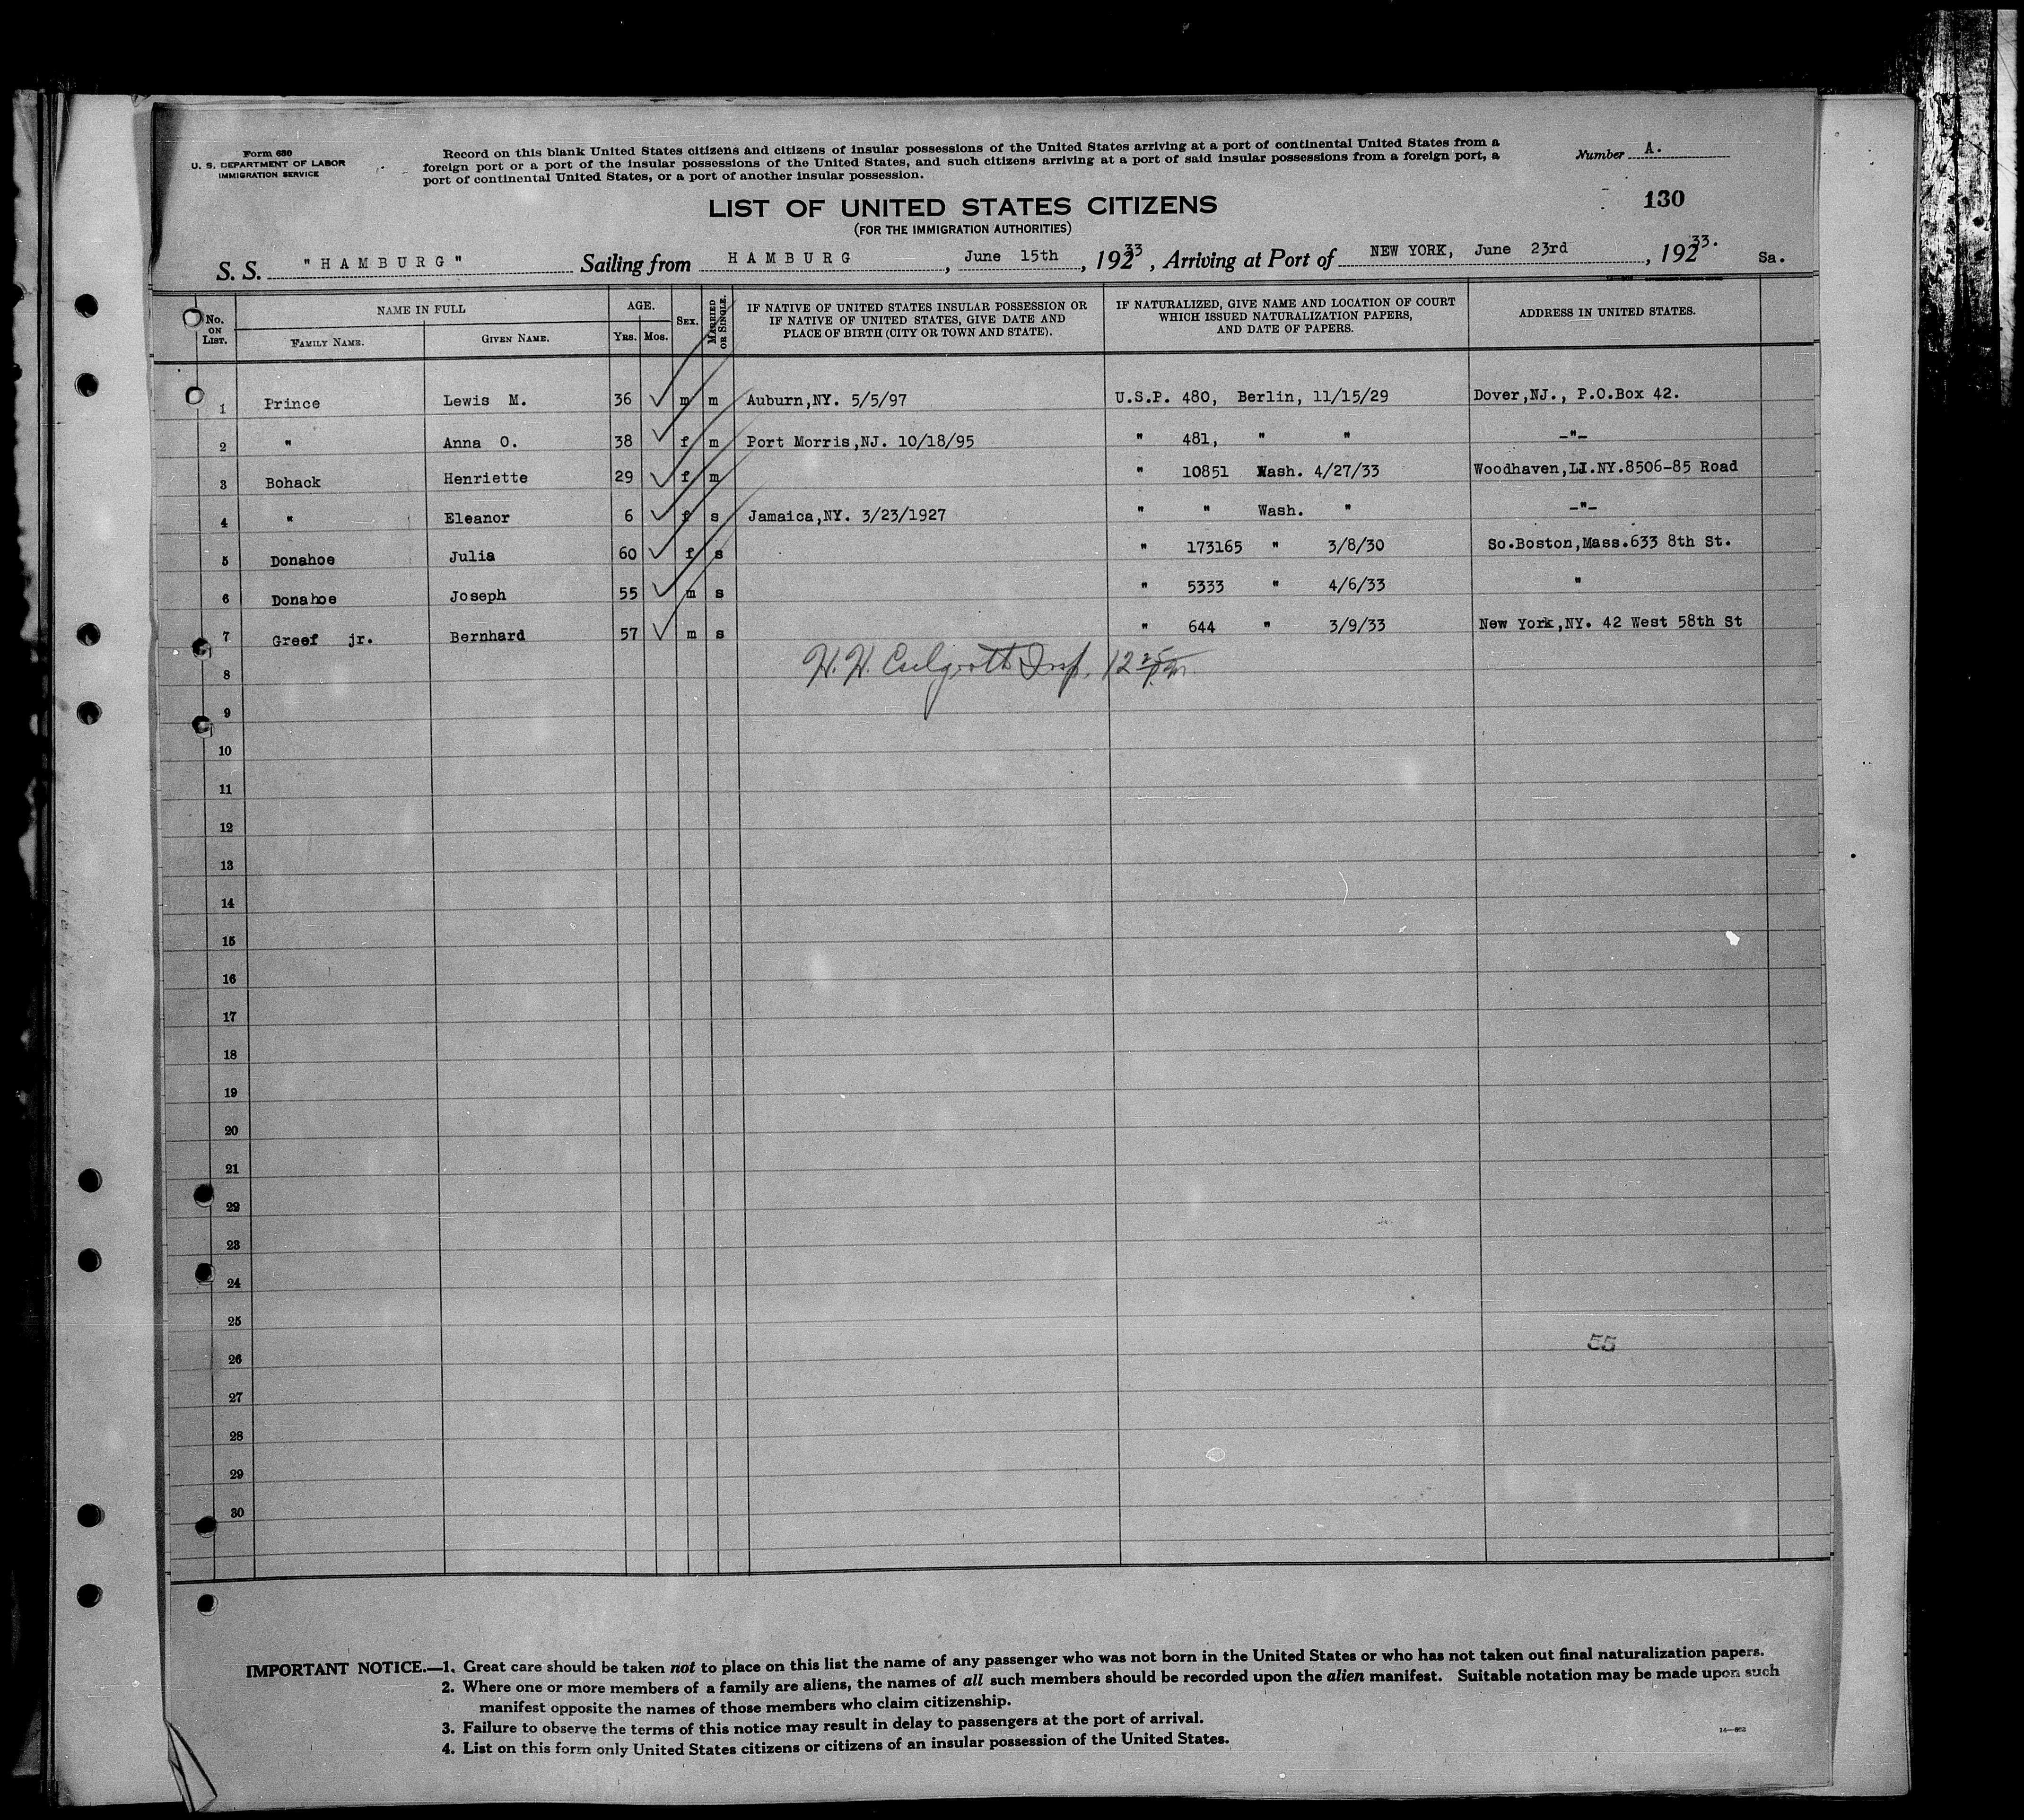 Form 630
U. S. DEPARTMENT OF LABOR
IMMIGRATION SERVICE
Record on this blank United States citizens and citizens of insular possessions of the United States arriving at a port of continental United States from a
foreign port or a port of the insular possessions of the United States, and such citizens arriving at a port of said insular possessions from a foreign port, a
port of continental United States, or a port of another insular possession.
Number A.
130
LIST OF UNITED STATES CITIZENS
(FOR THE IMMIGRATION AUTHORITIES)
S. S. "HAMBURG" Sailing from HAMBURG, June 15th, 19233, Arriving at Port of NEW YORK, June 23rd, 19233. Sa.
No. ON LIST. NAME IN FULL AGE. SEX. MARRIED OR SINGLE. IF NATIVE OF UNITED STATES INSULAR POSSESSION OR IF NATIVE OF UNITED STATES, GIVE DATE AND PLACE OF BIRTH (CITY OR TOWN AND STATE). IF NATURALIZED, GIVE NAME AND LOCATION OF COURT WHICH ISSUED NATURALIZATION PAPERS, AND DATE OF PAPERS. ADDRESS IN UNITED STATES.
FAMILY NAME. GIVEN NAME. YRS. MOS.
1 Prince Lewis M. 36 m m Auburn,NY. 5/5/97 U.S.P. 480, Berlin, 11/15/29 Dover,NJ., P.O.Box 42.
2 " Anna O. 38 f m Port Morris,NJ. 10/18/95 " 481, " " -"-
3 Bohack Henriette 29 f m " 10851 Wash. 4/27/33 Woodhaven,LI.NY.8506-85 Road
4 " Eleanor 6 f s Jamaica,NY. 3/23/1927 " " Wash. " -"-
5 Donahoe Julia 60 f s " 173165 " 3/8/30 So.Boston,Mass.633 8th St.
6 Donahoe Joseph 55 m s " 5333 " 4/6/33 "
7 Greef jr. Bernhard 57 m s " 644 " 3/9/33 New York,NY. 42 West 58th St
8 H. H. Insp. 12
9
10
11
12
13
14
15
16
17
18
19
20
21
22
23
24
25
55
26
27
28
29
30
IMPORTANT NOTICE.—1. Great care should be taken not to place on this list the name of any passenger who was not born in the United States or who has not taken out final naturalization papers.
2. Where one or more members of a family are aliens, the names of all such members should be recorded upon the alien manifest. Suitable notation may be made upon such
manifest opposite the names of those members who claim citizenship.
3. Failure to observe the terms of this notice may result in delay to passengers at the port of arrival.
4. List on this form only United States citizens or citizens of an insular possession of the United States.